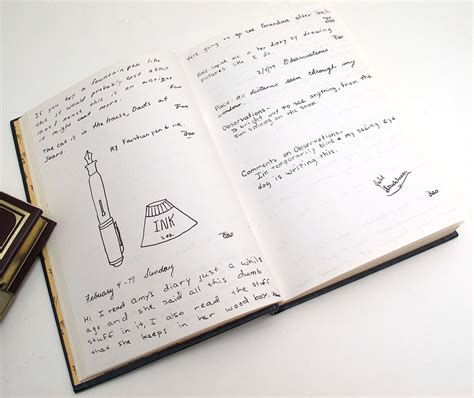 If you buy a fountain pen like
this it would probably cost about
because this is an antique
it might cost more.
The cat is in the house, Dad's at
Sears
My Fountian pen & ink.
INK
2 oz.
February 4-79 Sunday
Hi I read amy's diary just a while
ago and she said all this dumb
stuff in it, I also read the stuff
that she keeps in her wood box.
going to go see Grandma after
me in her diary by drawing
pictures like I do.
2/5/79 Observations
Place: All distance seen through my
window.
Observations-
To bright out to see anything, from the
sun shining on this snow.
Comments on Observations-
I'm temporarily blind & my seeing eye
dog is writing this.